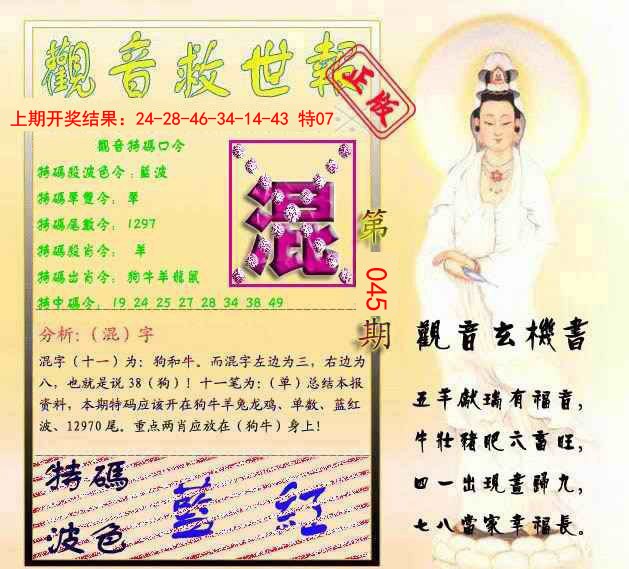 觀音救世報
正版
上期开奖结果：24-28-46-34-14-43 特07
觀音特碼口令
特碼段波色令：藍波
特碼單雙令： 單
特碼尾數令： 1297
特碼段肖令： 單
特碼出肖令： 狗牛羊龍鼠
特中碼令： 19 24 25 27 28 34 38 49
混
第
045
期
分析：（混）字
混字（十一）为：狗和牛。而混字左边为三，右边为
八，也就是说38（狗）！十一笔为：（单）总结本报
资料，本期特码应该开在狗牛羊兔龙鸡、单数、蓝红
波、12970尾。重点两肖应放在（狗牛）身上！
特碼
波色
藍 紅
觀音玄機書
五羊獻瑞有福音，
牛壯豬肥六畜旺，
四一出現晝歸九，
七八當家幸福長。